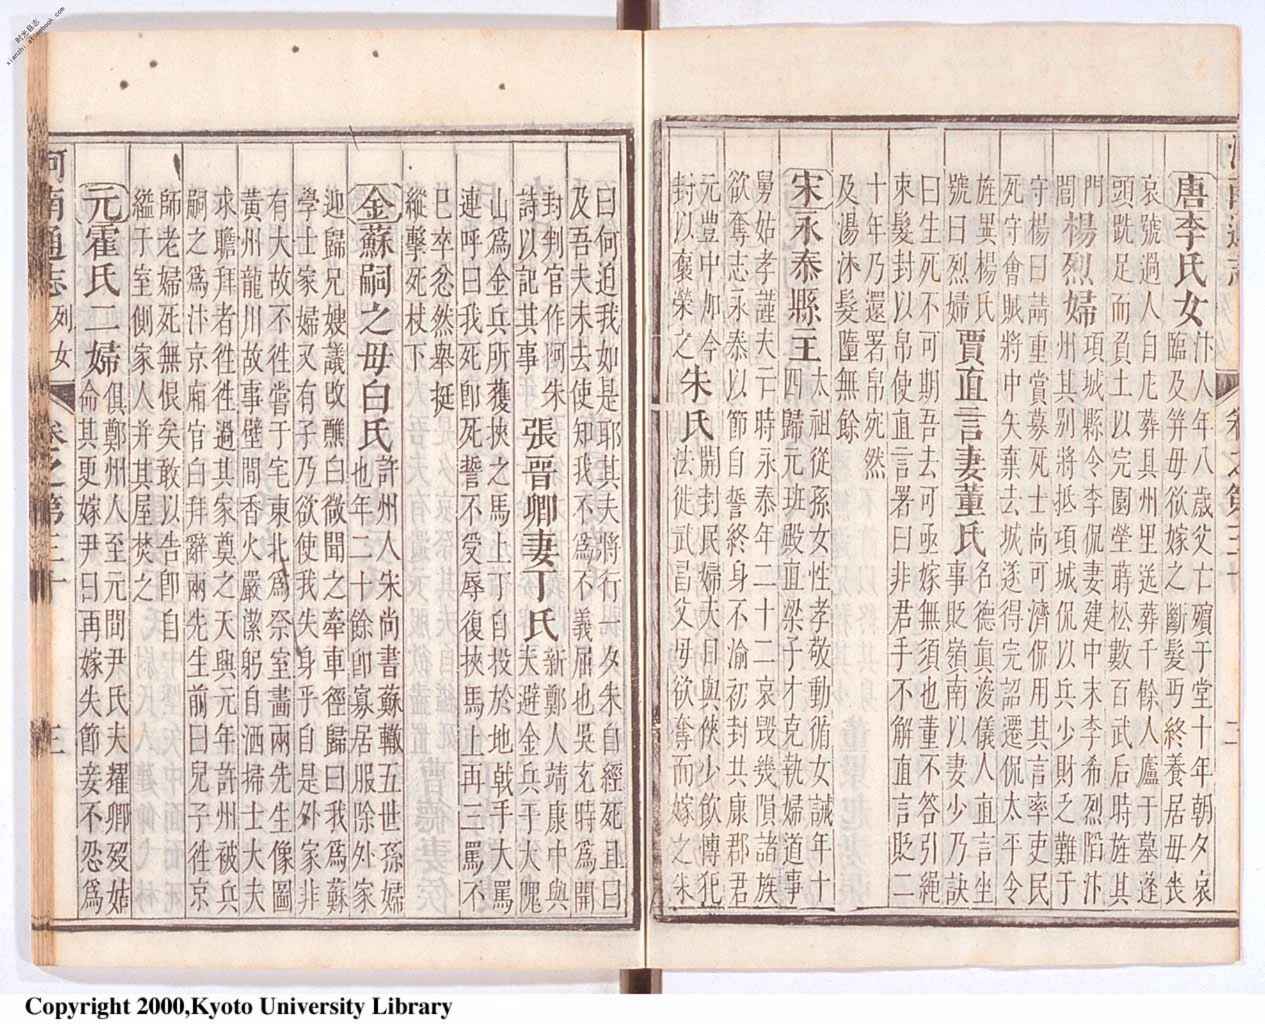 河南通志 卷之第三十
唐李氏女 汴人年八歲父亡殯于堂十年朝夕哀
臨及笄毋欲嫁之斷髮丐終養居毋喪
哀號過人自庀葬具州里送葬千餘人廬于墓蓬
頭跣足而負土以完園塋蒔松數百武后時旌其
門 楊烈婦 項城縣令李侃妻建中末李希烈陷汴
閭 州其別將抵項城侃以兵少財乏難于
守楊曰請重賞募死士尚可濟侃用其言率吏民
死守會賊將中矢棄去城遂得完詔遷侃太平令
旌異楊氏 賈直言妻董氏 名德眞浚儀人直言坐
號曰烈婦 事貶嶺南以妻少乃訣
曰生死不可期吾去可亟嫁無須也董不答引繩
束髮封以帛使直言署曰非君手不解直言貶二
十年乃還署帛宛然
及湯沐髮墮無餘
宋永泰縣王 太祖從孫女性孝敬動循女誡年十
四歸元班殿直梁子才克執婦道事
舅姑孝謹夫亡時永泰年二十二哀毀幾隕諸族
欲奪志永泰以節自誓終身不渝初封共康郡君
元豐中加今 朱氏 開封民婦夫日與俠少飲博犯
封以褒榮之 法徙武昌父毋欲奪而嫁之朱
曰何迫我如是耶其夫將行一夕朱自經死且曰
及吾夫未去使知我不爲不義屈也吳充時爲開
封判官作阿朱 張晉卿妻丁氏 新鄭人靖康中與
詩以記其事 夫避金兵于大隗
山爲金兵所獲挾之馬上丁自投於地戟手大罵
連呼曰我死卽死誓不受辱復挾馬上再三罵不
巳卒忿然舉挺
縱擊死杖下
金蘇嗣之毋白氏 許州人朱尚書蘇轍五世孫婦
也年二十餘卽寡居服除外家
迎歸兄嫂議改醮白微聞之牽車徑歸曰我爲蘇
學士家婦又有子乃欲使我失身乎自是外家非
有大故不徃嘗于宅東北爲祭室畫兩先生像圖
黃州龍川故事壁間香火嚴潔躬自洒掃士大夫
求瞻拜者徃徃過其家奠之天興元年許州被兵
嗣之爲汴京廂官白拜辭兩先生前曰兒子徃京
師老婦死無恨矣敢以告卽自
縊于室側家人并其屋焚之
元霍氏二婦 俱鄭州人至元間尹氏夫耀卿歿姑
命其更嫁尹曰再嫁失節妾不忍爲
河南通志 列女 卷之第三十 三
Copyright 2000,Kyoto University Library